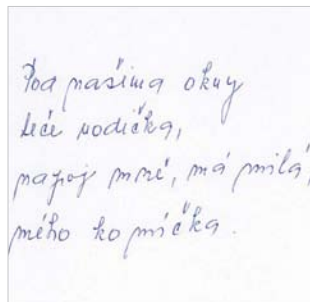 Pod našima okny
teče vodička,
napoj mně, má milá,
mého koníčka.